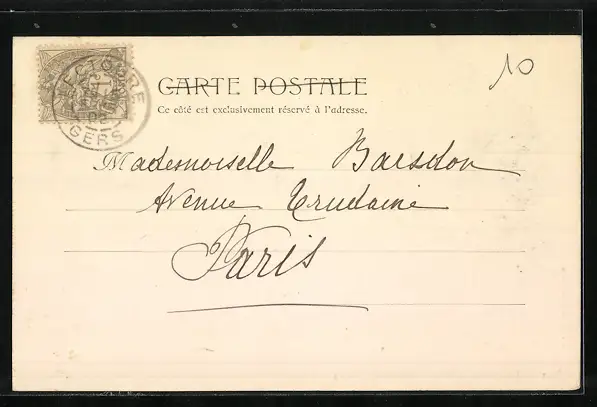 10
LECTOURE
GERS
CARTE POSTALE
Ce côté est exclusivement réservé à l'adresse.
Mademoiselle Baesdon
Avenue Trudaine
Paris